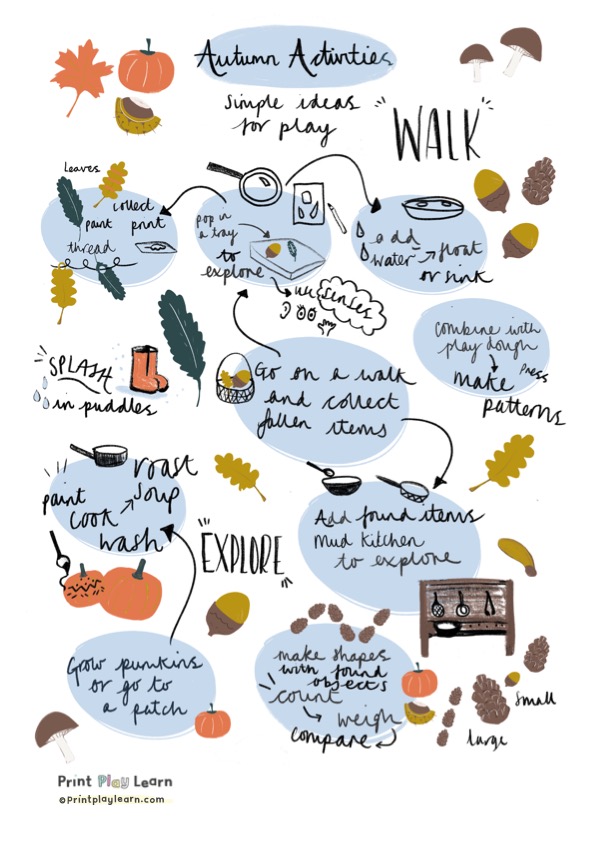 Autumn Activties
simple ideas
for play
"WALK"
leaves
collect
paint print
thread
pop in
a tray
to
explore
use senses
add
water → float
or sink
combine with
play dough
make press
patterns
SPLASH
in puddles
Go on a walk
and collect
fallen items
roast
paint soup
cook
wash
"EXPLORE"
Add found items
Mud kitchen
to explore
Grow pumkins
or go to
a patch
make shapes
with found
objects
count
weigh
compare
small
large
Print Play Learn
©Printplaylearn.com